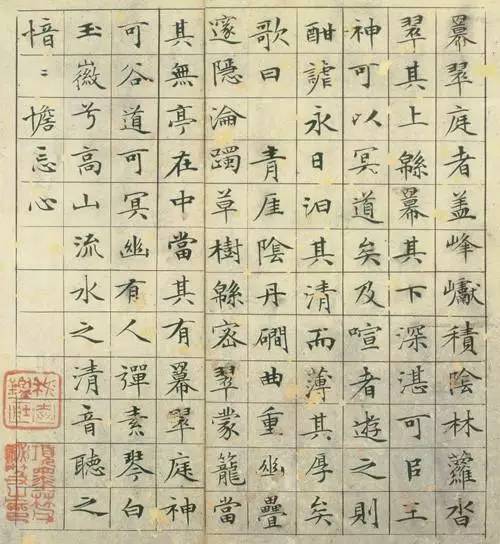 冪翠庭者盖峰巘積陰林蘿沓
翠其上緜冪其下深湛可㠯王
神可以冥道矣及喧者遊之則
酣謔永日汨其清而薄其厚矣
歌曰 青厓陰丹磵曲重幽疊
邃隱淪躅草樹緜密翠蒙籠當
其無亭在中當其有冪翠庭神
可谷道可冥幽有人彈素琴白
玉徽兮高山流水之清音聽之
愔〻憺忘心
項墨林父
祕笈之印